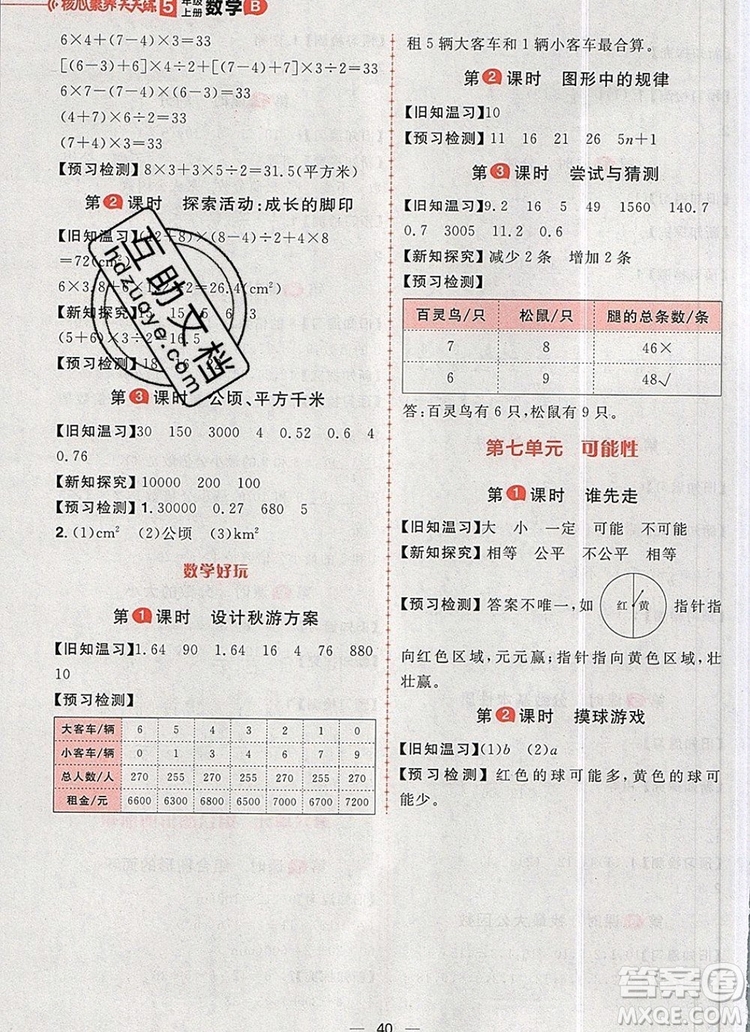 核心素养天天练 5年级上册 数学 B
6×4+(7-4)×3=33
[(6-3)+6]×4÷2+[(7-4)+7]×3÷2=33
6×7-(6-3)×(7-4)=33
(6+4)×3=33
(7+4)×3=33
【预习检测】8×3+3×5÷2=31.5(平方米)
第2课时 探索活动:成长的脚印
【旧知温习】(12+8)×(8-2)÷2+4×8
=72(cm²)
6×3.8+6×1.2÷2=26.4(cm²)
【新知探究】15 15 5 6 3
(5+6)×3÷2=16.5
【预习检测】18 16 24
第3课时 公顷、平方千米
【旧知温习】30 150 3000 4 0.52 0.6 4
0.76
【新知探究】10000 100 200
【预习检测】1.30000 0.27 680 5
2.(1)cm² (2)公顷 (3)km²
数学好玩
第1课时 设计秋游方案
【旧知温习】1.64 90 1.64 1264 4 880
10
【预习检测】
大客车/辆 6 5 4 3 2 1 0
小客车/辆 0 1 3 4 6 7 9
总人数/人 270 255 270 255 270 255 270
租金/元 6600 6300 6800 6500 7000 6700 7200
租5辆大客车和1辆小客车最合算。
第2课时 图形中的规律
【旧知温习】10
【预习检测】11 16 21 26 5n+1
第3课时 尝试与猜测
【旧知温习】9.2 16 5 49 1560 140.7
0.7 3005 11.2 0.6
【新知探究】减少2条 增加2条
【预习检测】
百灵鸟/只 松鼠/只 腿的总条数/条
7 8 46×
6 9 48√
答:百灵鸟有6只,松鼠有9只。
第七单元 可能性
第1课时 谁先走
【旧知温习】大 小 一定 可能 不可能
【新知探究】相等 公平 不公平 相等
【预习检测】答案不唯一,如 红 黄 指针指
向红色区域,元元赢;指针指向黄色区域,
壮壮赢。
第2课时 摸球游戏
【旧知温习】(1)b (2)a
【预习检测】红色的球可能多,黄色的球可
能少。
40
互助文档
hdzuoye.com
答案圈
MXQE.COM